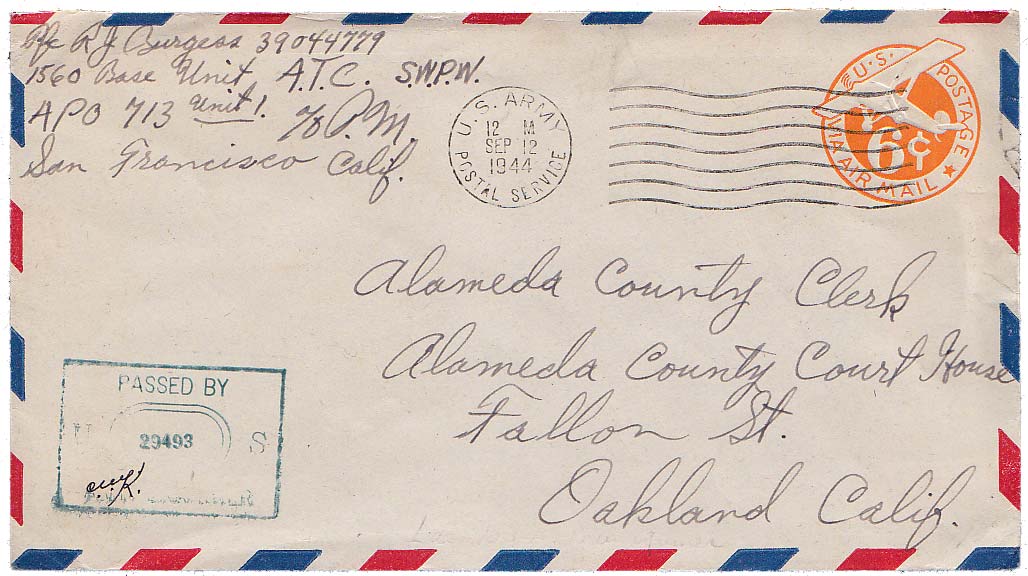 Pfc R J Burgess 39044779
1560 Base Unit, A.T.C. S.W.P.W.
APO 713 Unit 1. % P.M.
San Francisco Calif.
U.S. ARMY
12 M
SEP 12
1944
POSTAL SERVICE
U.S. POSTAGE
6¢
VIA AIR MAIL
Alameda County Clerk
Alameda County Court House
Fallon St.
Oakland Calif.
PASSED BY
U 29493 S